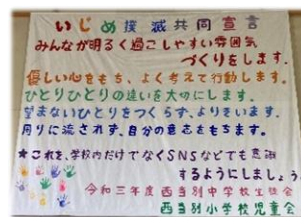 いじめ撲滅共同宣言
みんなが明るく過ごしやすい雰囲気
づくりをします。
優しい心をもち、よく考えて行動します。
ひとりひとりの違いを大切にします。
望まないひとりをつくらず、よりそいます。
周りに流されず、自分の意志をもちます。
★これを、学校内だけでなくSNSなどでも意識
するようにしましょう。
令和三年度 西当別中学校生徒会
西当別小学校児童会